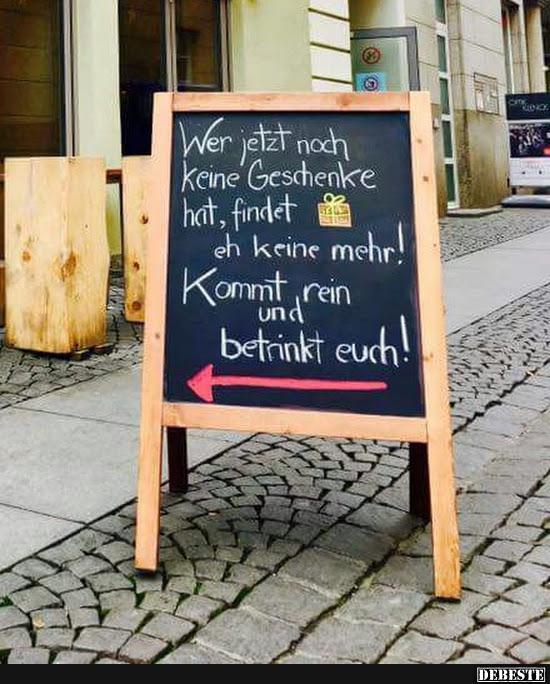 Wer jetzt noch
keine Geschenke
hat, findet
eh keine mehr!
Kommt rein
und
betrinkt euch!
DEBESTE